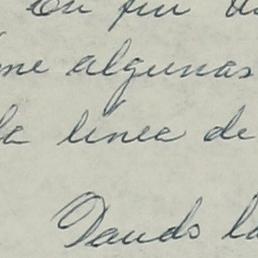 En fin
me algunas
la linea de
Dands la